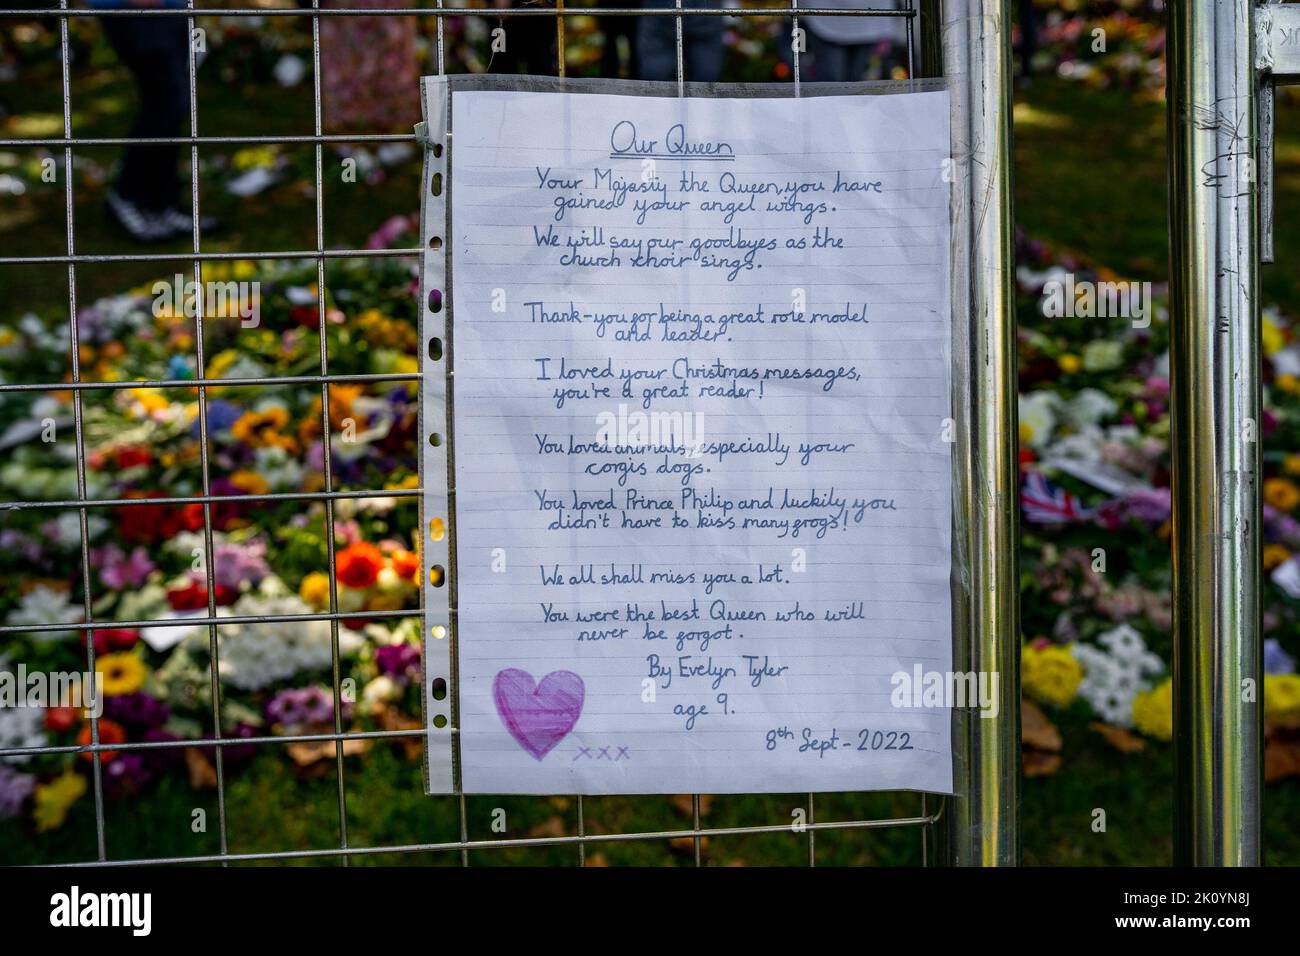 Our Queen
Your Majasty the Queen, you have
gained your angel wings.
We will say our goodbyes as the
church choir sings.
Thank-you for being a great role model
and leader.
I loved your Christmas messages,
you're a great reader!
You loved animals, especially your
corgis dogs.
You loved Prince Philip and luckily you
didn't have to kiss many frogs!
We all shall miss you a lot.
You were the best Queen who will
never be forgot.
By Evelyn Tyler
age 9.
xxx
8th Sept - 2022
alamy
Image ID: 2K0YN8J
www.alamy.com